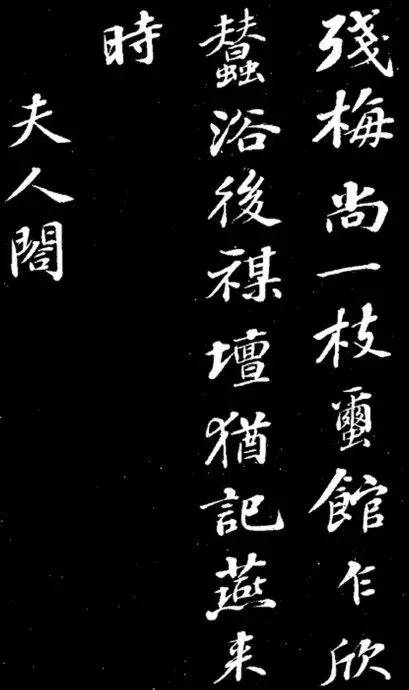 殘梅尚一枝蠒館乍欣
蠺浴後禖壇猶記燕来
時
夫人閤